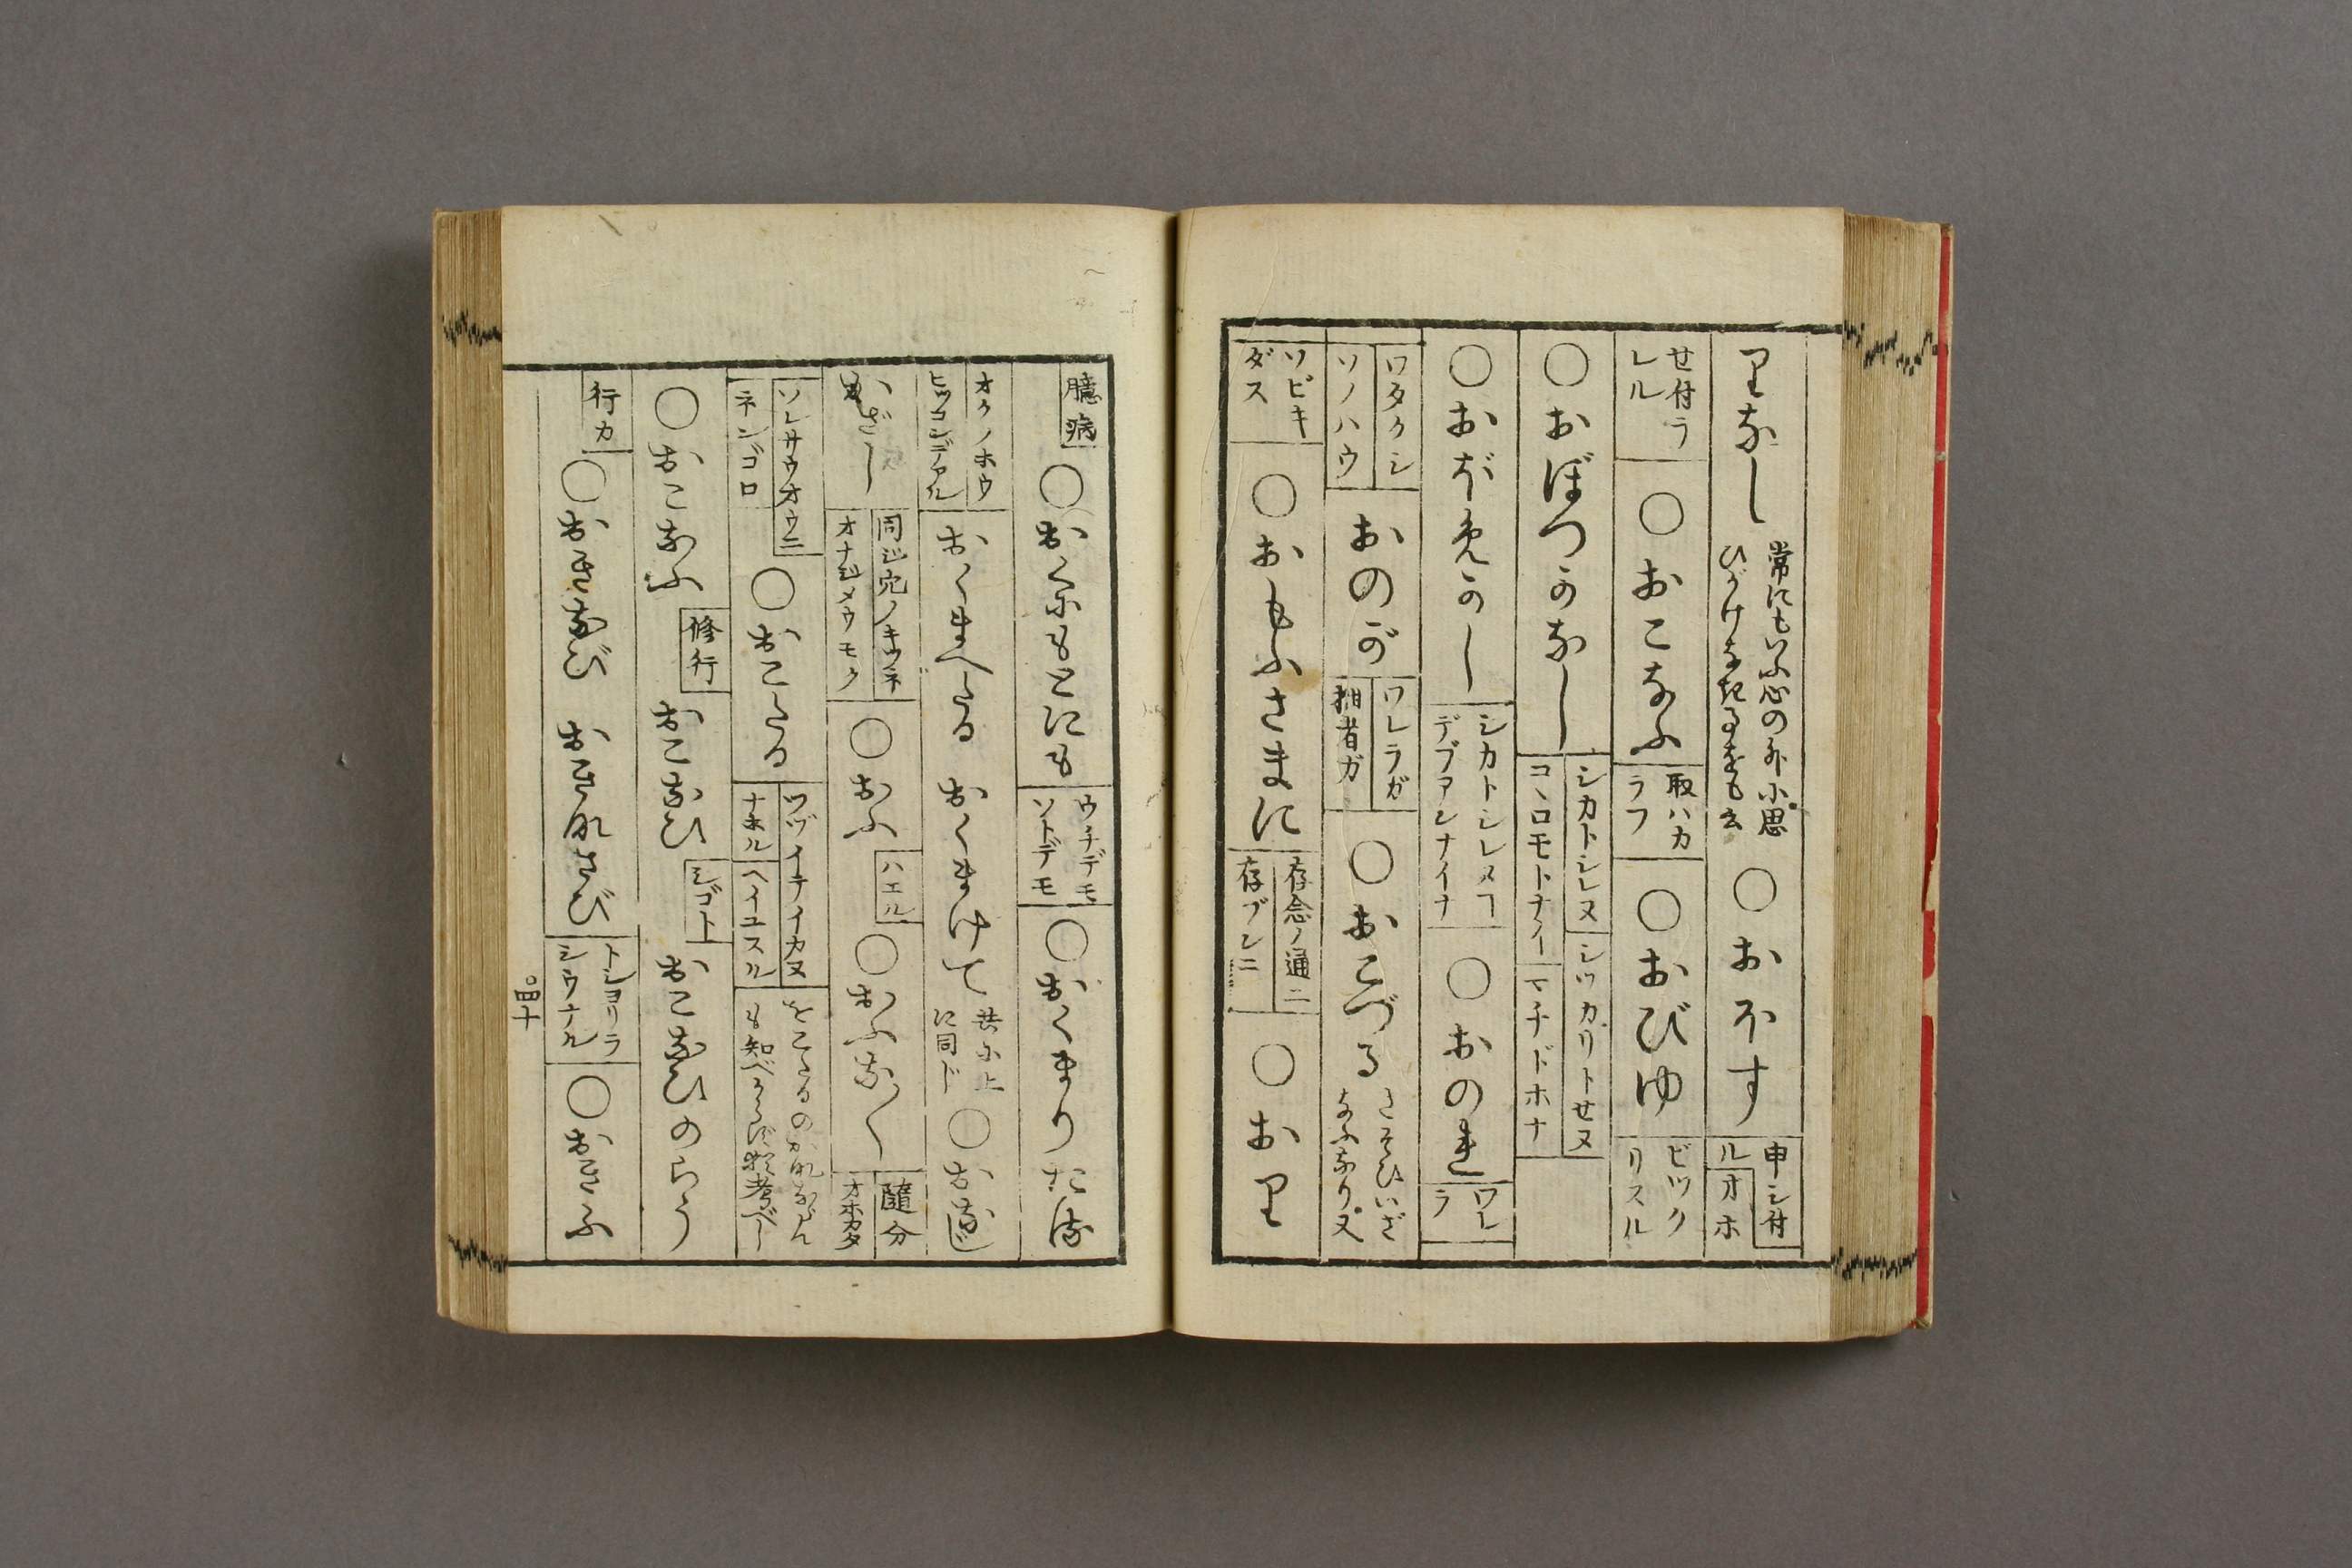 りなし 常にもいふ心の外に思ひがけなき事をも云 ○おほす 申シ付ル オホ
セ付ラレル ○おこなふ 取ハカラフ ○おびゆ ビツクリスル
○おぼつかなし シカトシレヌ コヽロモトナイ シツカリトセヌ マチドホナ
○おぼめかし シカトシレヌヿデブアンナイナ ○おのれ ワレラ
ワタクシ ソノハウ おのが ワレラガ 拙者ガ ○おこづる さそひいざなふなり又
ソビキダス ○おもふさまに 存念ノ通ニ 存ブンニ ○おり
臆病 ○おくにもとにも ウチデモソトデモ ○おくまりたる
オクノホウ ヒツコンデアル おくまへたる おくまけて 共に上に同ド ○おなじ
かざし 同ジ穴ノキツネ オナジメウモク ○おふ ハエル ○おふな〳〵 随分 オホカタ
ソレサウオウニ ネンゴロ ○おこたる ツヅイテイカヌ ナホル ヘイユスル
○おこなふ 修行 おこなひ シゴト おこなひのらう
行カ ○おきなび おきなさび トシヨリラシウナル ○おきふ
四十